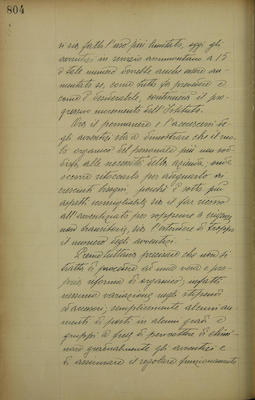 804
si sia fatto l'uso più limitato, oggi gli
avventizi in servizio ammontano a 15
e tale numero dovrebbe anche essere au-
mentato se, come tutto fa prevedere e
come è desiderabile, continuerà il pro-
gressivo incremento dell'Istituto.
Ora il permanere e l'accrescersi de-
gli avventizi sta a dimostrare che il ruo-
lo organico del personale più non sod-
disfa alle necessità della azienda, onde
occorre ritoccarlo per adeguarlo ai
cresciuti bisogni, perché è sotto più
aspetti sconsigliabile sia il far ricorso
all'avventiziato per sopperire a esigenze
non transitorie, sia l'estendere di troppo
il numero degli avventizi.
Premettiamo che non si
tratta di procedere ad una vera e pro-
pria riforma di organico; infatti
nessuna variazione negli stipendi
di accesso; semplicemente alcuni au-
menti di posti in alcuni gradi e
gruppi al fine di permettere di elimi-
nare gradualmente gli avventizi e
di assicurare il regolare funzionamento